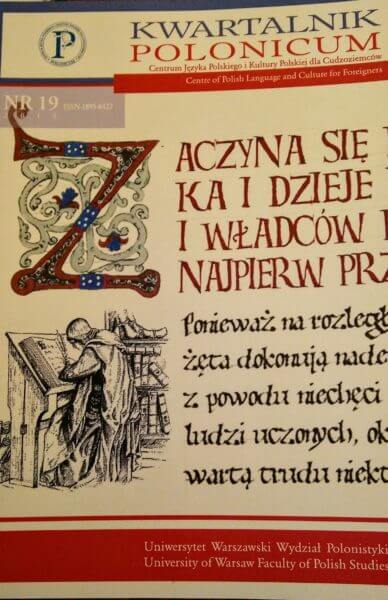 KWARTALNIK
POLONICUM
Centrum Języka Polskiego i Kultury Polskiej dla Cudzoziemców
Centre of Polish Language and Culture for Foreigners
P
NR 19 ISSN
ZACZYNA SIĘ
KA I DZIEJE
I WŁADCÓW
NAJPIERW PRZ
Ponieważ na rozległ
żęta dokonują nade
z powodu niechęci
ludzi uczonych, ok
wartą trudu niekt
Uniwersytet Warszawski Wydział Polonistyki
University of Warsaw Faculty of Polish Studies